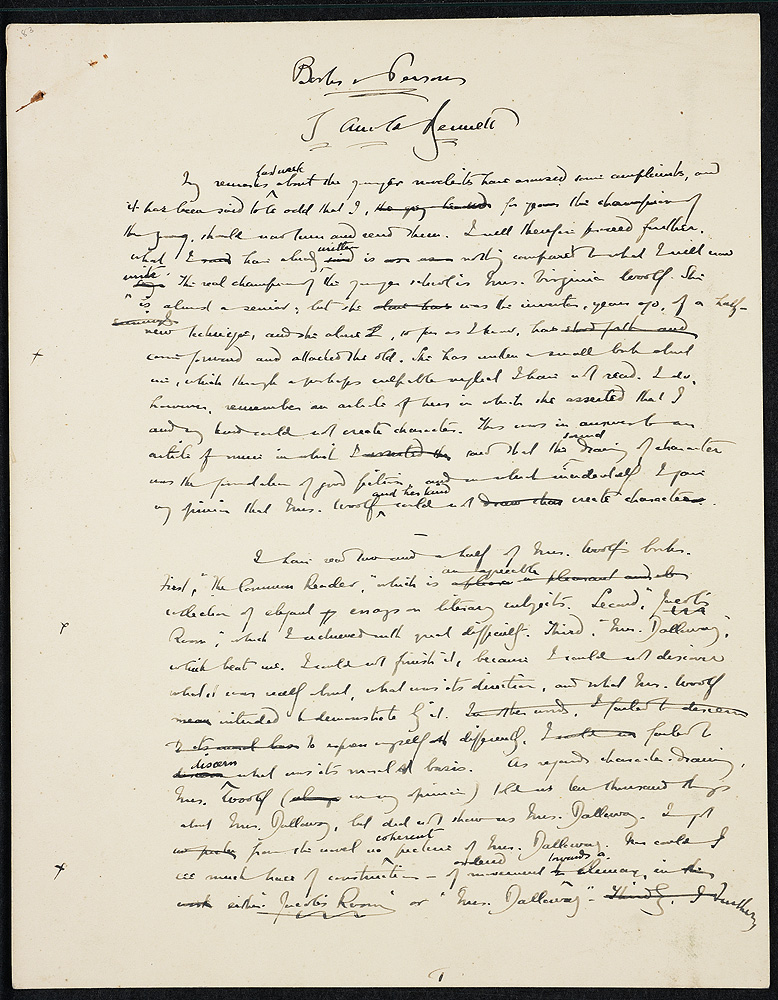 Books & Persons
J Arnold Bennett
My remarks last week about the younger novelists have aroused some complaints, and
it has been said to be odd that I, the grey headed for years the champion of
the young, should now turn and rend them. I will therefore proceed further.
What I said have already said written is as was nothing compared to what I will now
write. The real champion of the younger school is Mrs. Virginia Woolf. She
is almost a senior; but she also has was the inventor, years ago, of a half-
new technique, and she alone, so far as I know, has stood forth and
come forward and attacked the old. She has written a small book about
me, which through a perhaps culpable neglect I have not read. I do,
however, remember an article of hers in which she asserted that I
and my kind could not create character. This was in answer to an
article of mine in which I asserted the said that the sound drawing of character
was the foundation of good fiction, and in which incidentally I gave
my opinion that Mrs. Woolf and her kind could not draw char create character.
I have read two and a half of Mrs. Woolf's books.
First, "The Common Reader," which is an agreeable
collection of elegant essays on literary subjects. Second, "Jacob's
Room", which I achieved with great difficulty. Third, "Mrs. Dalloway",
which beat me. I could not finish it, because I could not discover
what it was really about, what was its direction, and what Mrs. Woolf
mean intended to demonstrate by it. In other words, I failed to discern
its moral basis To express myself differently, I failed to
discern what was its moral basis. As regards character-drawing,
Mrs. Woolf (in my opinion) told us ten thousand things
about Mrs. Dalloway, but did not show us Mrs. Dalloway. I got
no picture from the novel no coherent picture of Mrs. Dalloway. Nor could I
see much trace of construction – of ordered movement towards a climax, in
work either "Jacob's Room" or "Mrs. Dalloway" – Thirdly, I Further,
1